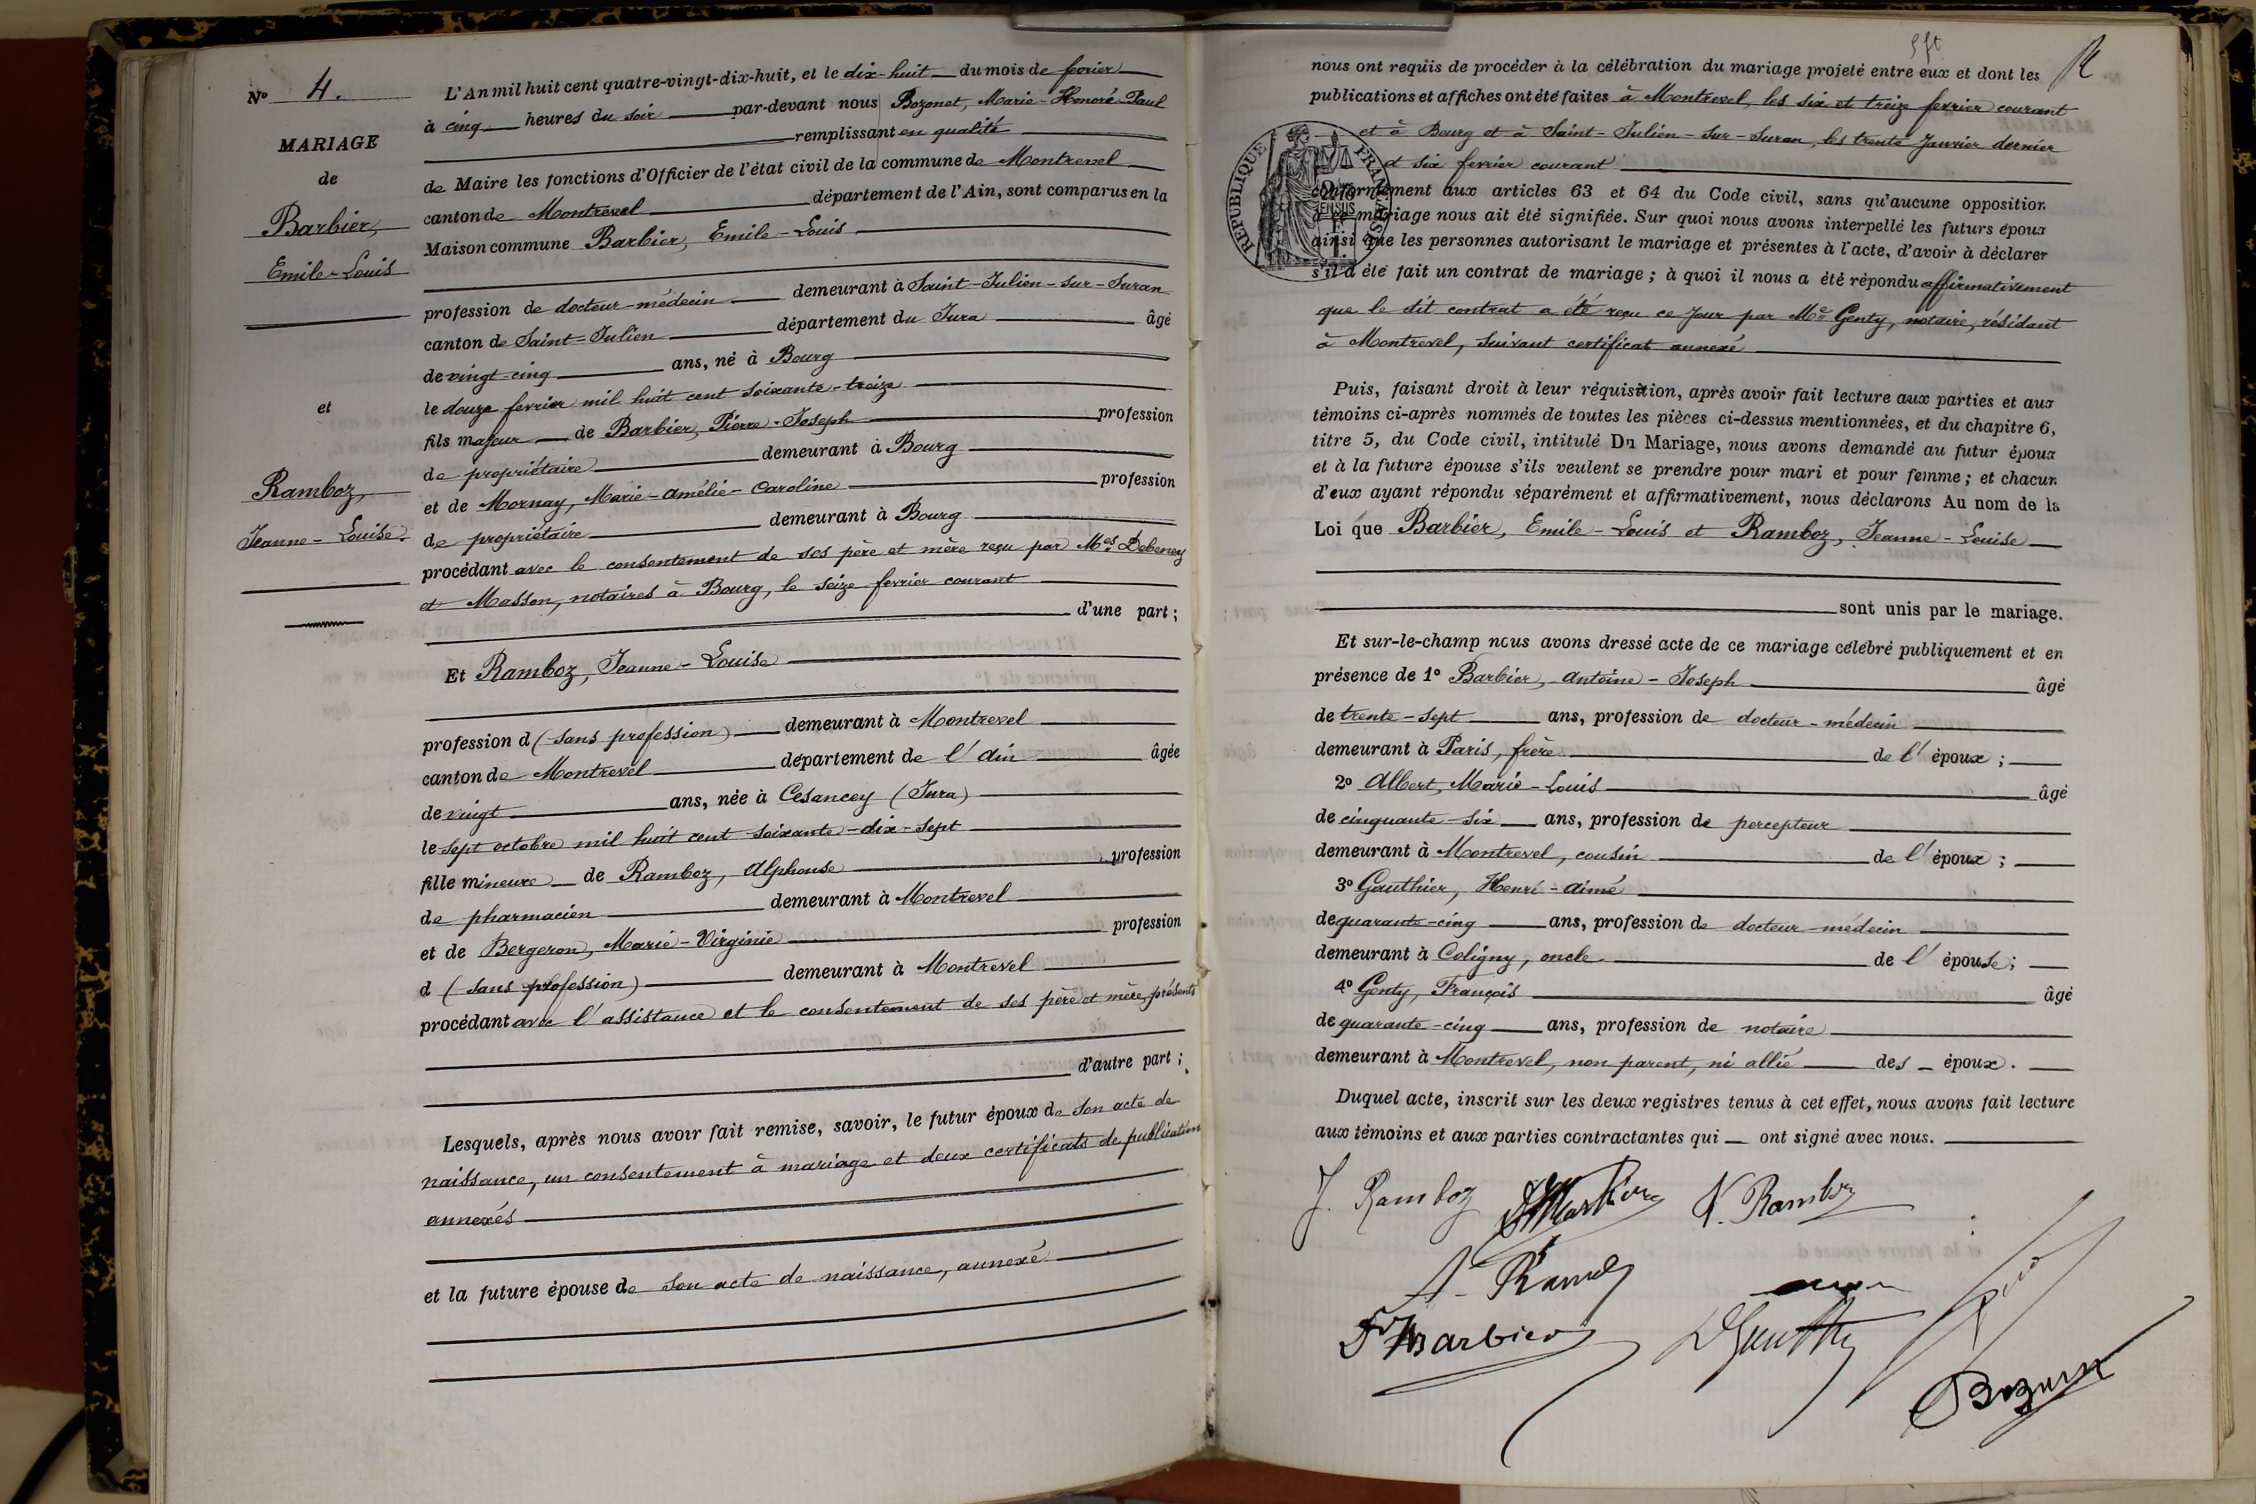 N° 4.
MARIAGE
de
Barbier,
Emile-Louis
et
Ramboz,
Jeanne-Louise.
L'An mil huit cent quatre-vingt-dix-huit, et le dix-huit du mois de fevrier
à cinq heures du soir par-devant nous Bozonet, Marie-Honoré-Paul
remplissant en qualité
de Maire les fonctions d'Officier de l'état civil de la commune de Montrevel
canton de Montrevel département de l'Ain, sont comparus en la
Maison commune Barbier, Emile-Louis
profession de docteur-médecin demeurant à Saint-Julien-sur-Suran
canton de Saint-Julien département du Jura âgé
de vingt-cinq ans, né à Bourg
le douze fevrier mil huit cent soixante-treize
fils majeur de Barbier, Pierre-Joseph profession
de propriétaire demeurant à Bourg
et de Mornay, Marie-Amélie-Caroline profession
de propriétaire demeurant à Bourg
procédant avec le consentement de ses père et mère reçu par Mes Debeney
et Masson, notaires à Bourg, le seize fevrier courant
d'une part;
Et Ramboz, Jeanne-Louise
profession d (sans profession) demeurant à Montrevel
canton de Montrevel département de l'Ain âgée
de vingt ans, née à Cesancey (Jura)
le sept octobre mil huit cent soixante-dix-sept
fille mineure de Ramboz, Alphonse profession
de pharmacien demeurant à Montrevel
et de Bergeron, Marie-Virginie profession
d (sans profession) demeurant à Montrevel
procédant avec l'assistance et le consentement de ses père et mère, présents
d'autre part;
Lesquels, après nous avoir fait remise, savoir, le futur époux de son acte de
naissance, un consentement à mariage et deux certificats de publication
annexés
et la future épouse de son acte de naissance, annexé
nous ont requis de procéder à la célébration du mariage projeté entre eux et dont les
publications et affiches ont été faites à Montrevel, les six et treize fevrier courant
et à Bourg et à Saint-Julien-sur-Suran, les trente Janvier dernier
et six fevrier courant
REPUBLIQUE FRANÇAISE
conformément aux articles 63 et 64 du Code civil, sans qu'aucune opposition
à ce mariage nous ait été signifiée. Sur quoi nous avons interpellé les futurs époux
ainsi que les personnes autorisant le mariage et présentes à l'acte, d'avoir à déclarer
s'il a été fait un contrat de mariage; à quoi il nous a été répondu affirmativement
que le dit contrat a été reçu ce jour par Me Genty, notaire, résidant
à Montrevel, suivant certificat annexé
Puis, faisant droit à leur réquisition, après avoir fait lecture aux parties et aux
témoins ci-après nommés de toutes les pièces ci-dessus mentionnées, et du chapitre 6,
titre 5, du Code civil, intitulé Du Mariage, nous avons demandé au futur époux
et à la future épouse s'ils veulent se prendre pour mari et pour femme; et chacun
d'eux ayant répondu séparément et affirmativement, nous déclarons Au nom de la
Loi que Barbier, Emile-Louis et Ramboz, Jeanne-Louise
sont unis par le mariage.
Et sur-le-champ nous avons dressé acte de ce mariage célébré publiquement et en
présence de 1° Barbier, Antoine-Joseph âgé
de trente-sept ans, profession de docteur-médecin
demeurant à Paris, frère de l'époux;
2° Albert, Marie-Louis âgé
de cinquante-six ans, profession de percepteur
demeurant à Montrevel, cousin de l'époux;
3° Gauthier, Henri-Aimé
de quarante-cinq ans, profession de docteur médecin
demeurant à Coligny, oncle de l'épouse;
4° Genty, François âgé
de quarante-cinq ans, profession de notaire
demeurant à Montrevel, non parent, ni allié des époux.
Duquel acte, inscrit sur les deux registres tenus à cet effet, nous avons fait lecture
aux témoins et aux parties contractantes qui ont signé avec nous.
J. Ramboz V. Ramboz
Dr Barbier